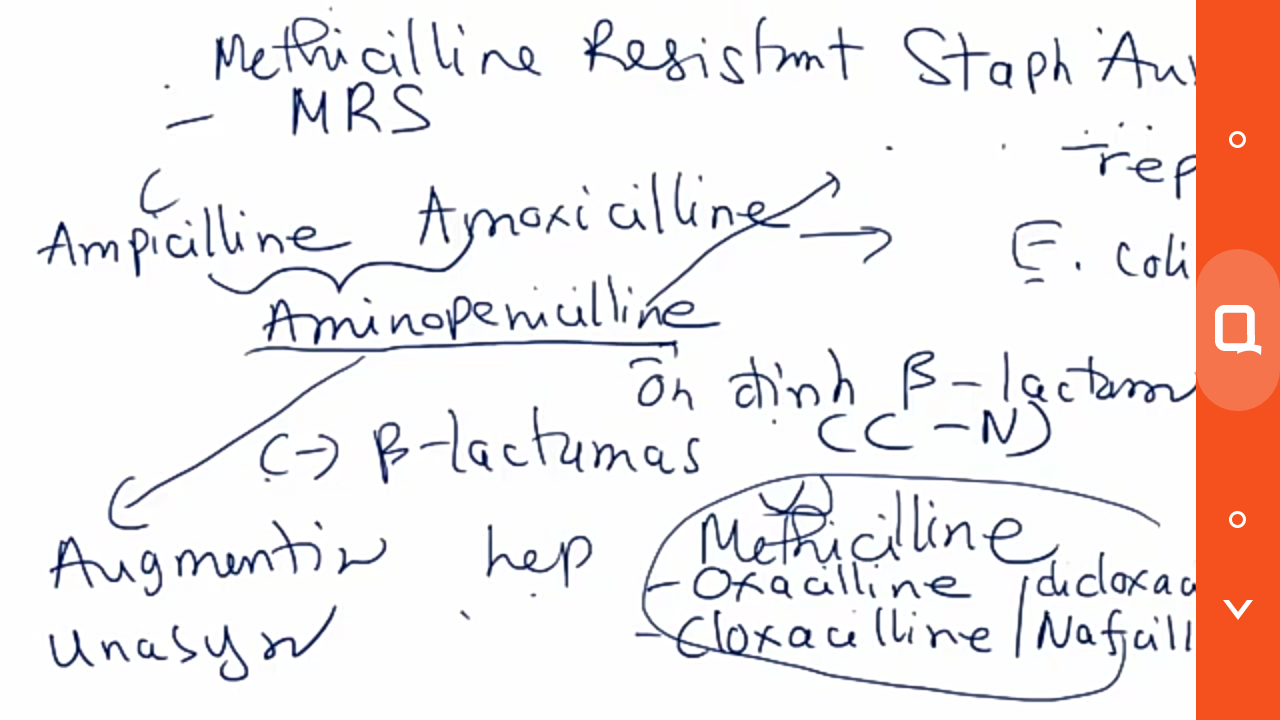 Methicilline Resistant Staph Au
- MRS
rep
Ampicilline Amoxicilline
E. coli
Aminopenicilline
ổn định β-lactam
(C-N)
(-) β-lactamas
Methicilline
Augmentin hẹp
- Oxacilline /dicloxac
Unasyn
- Cloxacilline /Nafcill